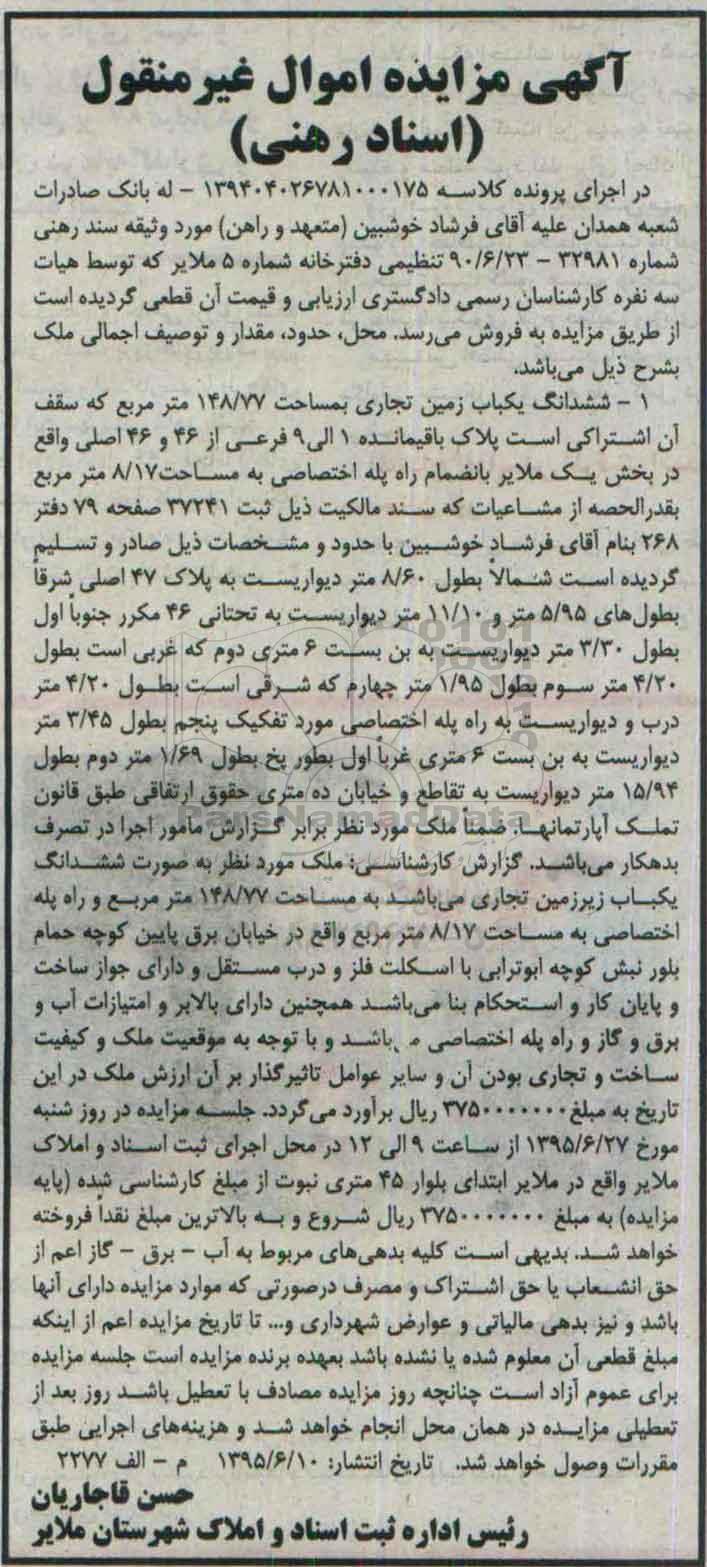 آگهی مزایده اموال غیرمنقول
(اسناد رهنی)
در اجرای پرونده کلاسه ۱۳۹۴۰۴۰۲۶۷۸۱۰۰۰۱۷۵ – له بانک صادرات
شعبه همدان علیه آقای فرشاد خوشبین (متعهد و راهن) مورد وثیقه سند رهنی
شماره ۳۲۹۸۱ – ۹۰/۶/۲۳ تنظیمی دفترخانه شماره ۵ ملایر که توسط هیات
سه نفره کارشناسان رسمی دادگستری ارزیابی و قیمت آن قطعی گردیده است
از طریق مزایده به فروش می‌رسد. محل، حدود، مقدار و توصیف اجمالی ملک
بشرح ذیل می‌باشد.
۱ – ششدانگ یکباب زمین تجاری بمساحت ۱۴۸/۷۷ متر مربع که سقف
آن اشتراکی است پلاک باقیمانده ۱ الی۹ فرعی از ۴۶ و ۴۶ اصلی واقع
در بخش یک ملایر بانضمام راه پله اختصاصی به مساحت۸/۱۷ متر مربع
بقدرالحصه از مشاعیات که سند مالکیت ذیل ثبت ۳۷۲۴۱ صفحه ۷۹ دفتر
۲۶۸ بنام آقای فرشاد خوشبین با حدود و مشخصات ذیل صادر و تسلیم
گردیده است شمالاً بطول ۸/۶۰ متر دیواریست به پلاک ۴۷ اصلی شرقاً
بطول‌های ۵/۹۵ متر و ۱۱/۱۰ متر دیواریست به تحتانی ۴۶ مکرر جنوباً اول
بطول ۳/۳۰ متر دیواریست به بن بست ۶ متری دوم که غربی است بطول
۴/۲۰ متر سوم بطول ۱/۹۵ متر چهارم که شرقی است بطول ۴/۲۰ متر
درب و دیواریست به راه پله اختصاصی مورد تفکیک پنجم بطول ۳/۴۵ متر
دیواریست به بن بست ۶ متری غرباً اول بطور پخ بطول ۱/۶۹ متر دوم بطول
۱۵/۹۴ متر دیواریست به تقاطع و خیابان ده متری حقوق ارتفاقی طبق قانون
تملک آپارتمانها. ضمناً ملک مورد نظر برابر گزارش مامور اجرا در تصرف
بدهکار می‌باشد. گزارش کارشناسی: ملک مورد نظر به صورت ششدانگ
یکباب زیرزمین تجاری می‌باشد به مساحت ۱۴۸/۷۷ متر مربع و راه پله
اختصاصی به مساحت ۸/۱۷ متر مربع واقع در خیابان برق پایین کوچه حمام
بلور نبش کوچه ابوترابی با اسکلت فلز و درب مستقل و دارای جواز ساخت
و پایان کار و استحکام بنا می‌باشد همچنین دارای بالابر و امتیازات آب و
برق و گاز و راه پله اختصاصی می‌باشد و با توجه به موقعیت ملک و کیفیت
ساخت و تجاری بودن آن و سایر عوامل تاثیرگذار بر آن ارزش ملک در این
تاریخ به مبلغ ۳۷۵۰۰۰۰۰۰۰ ریال برآورد می‌گردد. جلسه مزایده در روز شنبه
مورخ ۱۳۹۵/۶/۲۷ از ساعت ۹ الی ۱۲ در محل اجرای ثبت اسناد و املاک
ملایر واقع در ملایر ابتدای بلوار ۴۵ متری نبوت از مبلغ کارشناسی شده (پایه
مزایده) به مبلغ ۳۷۵۰۰۰۰۰۰۰ ریال شروع و به بالاترین مبلغ نقداً فروخته
خواهد شد. بدیهی است کلیه بدهی‌های مربوط به آب – برق – گاز اعم از
حق انشعاب یا حق اشتراک و مصرف درصورتی که موارد مزایده دارای آنها
باشد و نیز بدهی مالیاتی و عوارض شهرداری و... تا تاریخ مزایده اعم از اینکه
مبلغ قطعی آن معلوم شده یا نشده باشد بعهده برنده مزایده است جلسه مزایده
برای عموم آزاد است چنانچه روز مزایده مصادف با تعطیل باشد روز بعد از
تعطیلی مزایده در همان محل انجام خواهد شد و هزینه‌های اجرایی طبق
مقررات وصول خواهد شد. تاریخ انتشار: ۱۳۹۵/۶/۱۰ م – الف ۲۲۷۷
حسن قاجاریان
رئیس اداره ثبت اسناد و املاک شهرستان ملایر
ParsNamadData